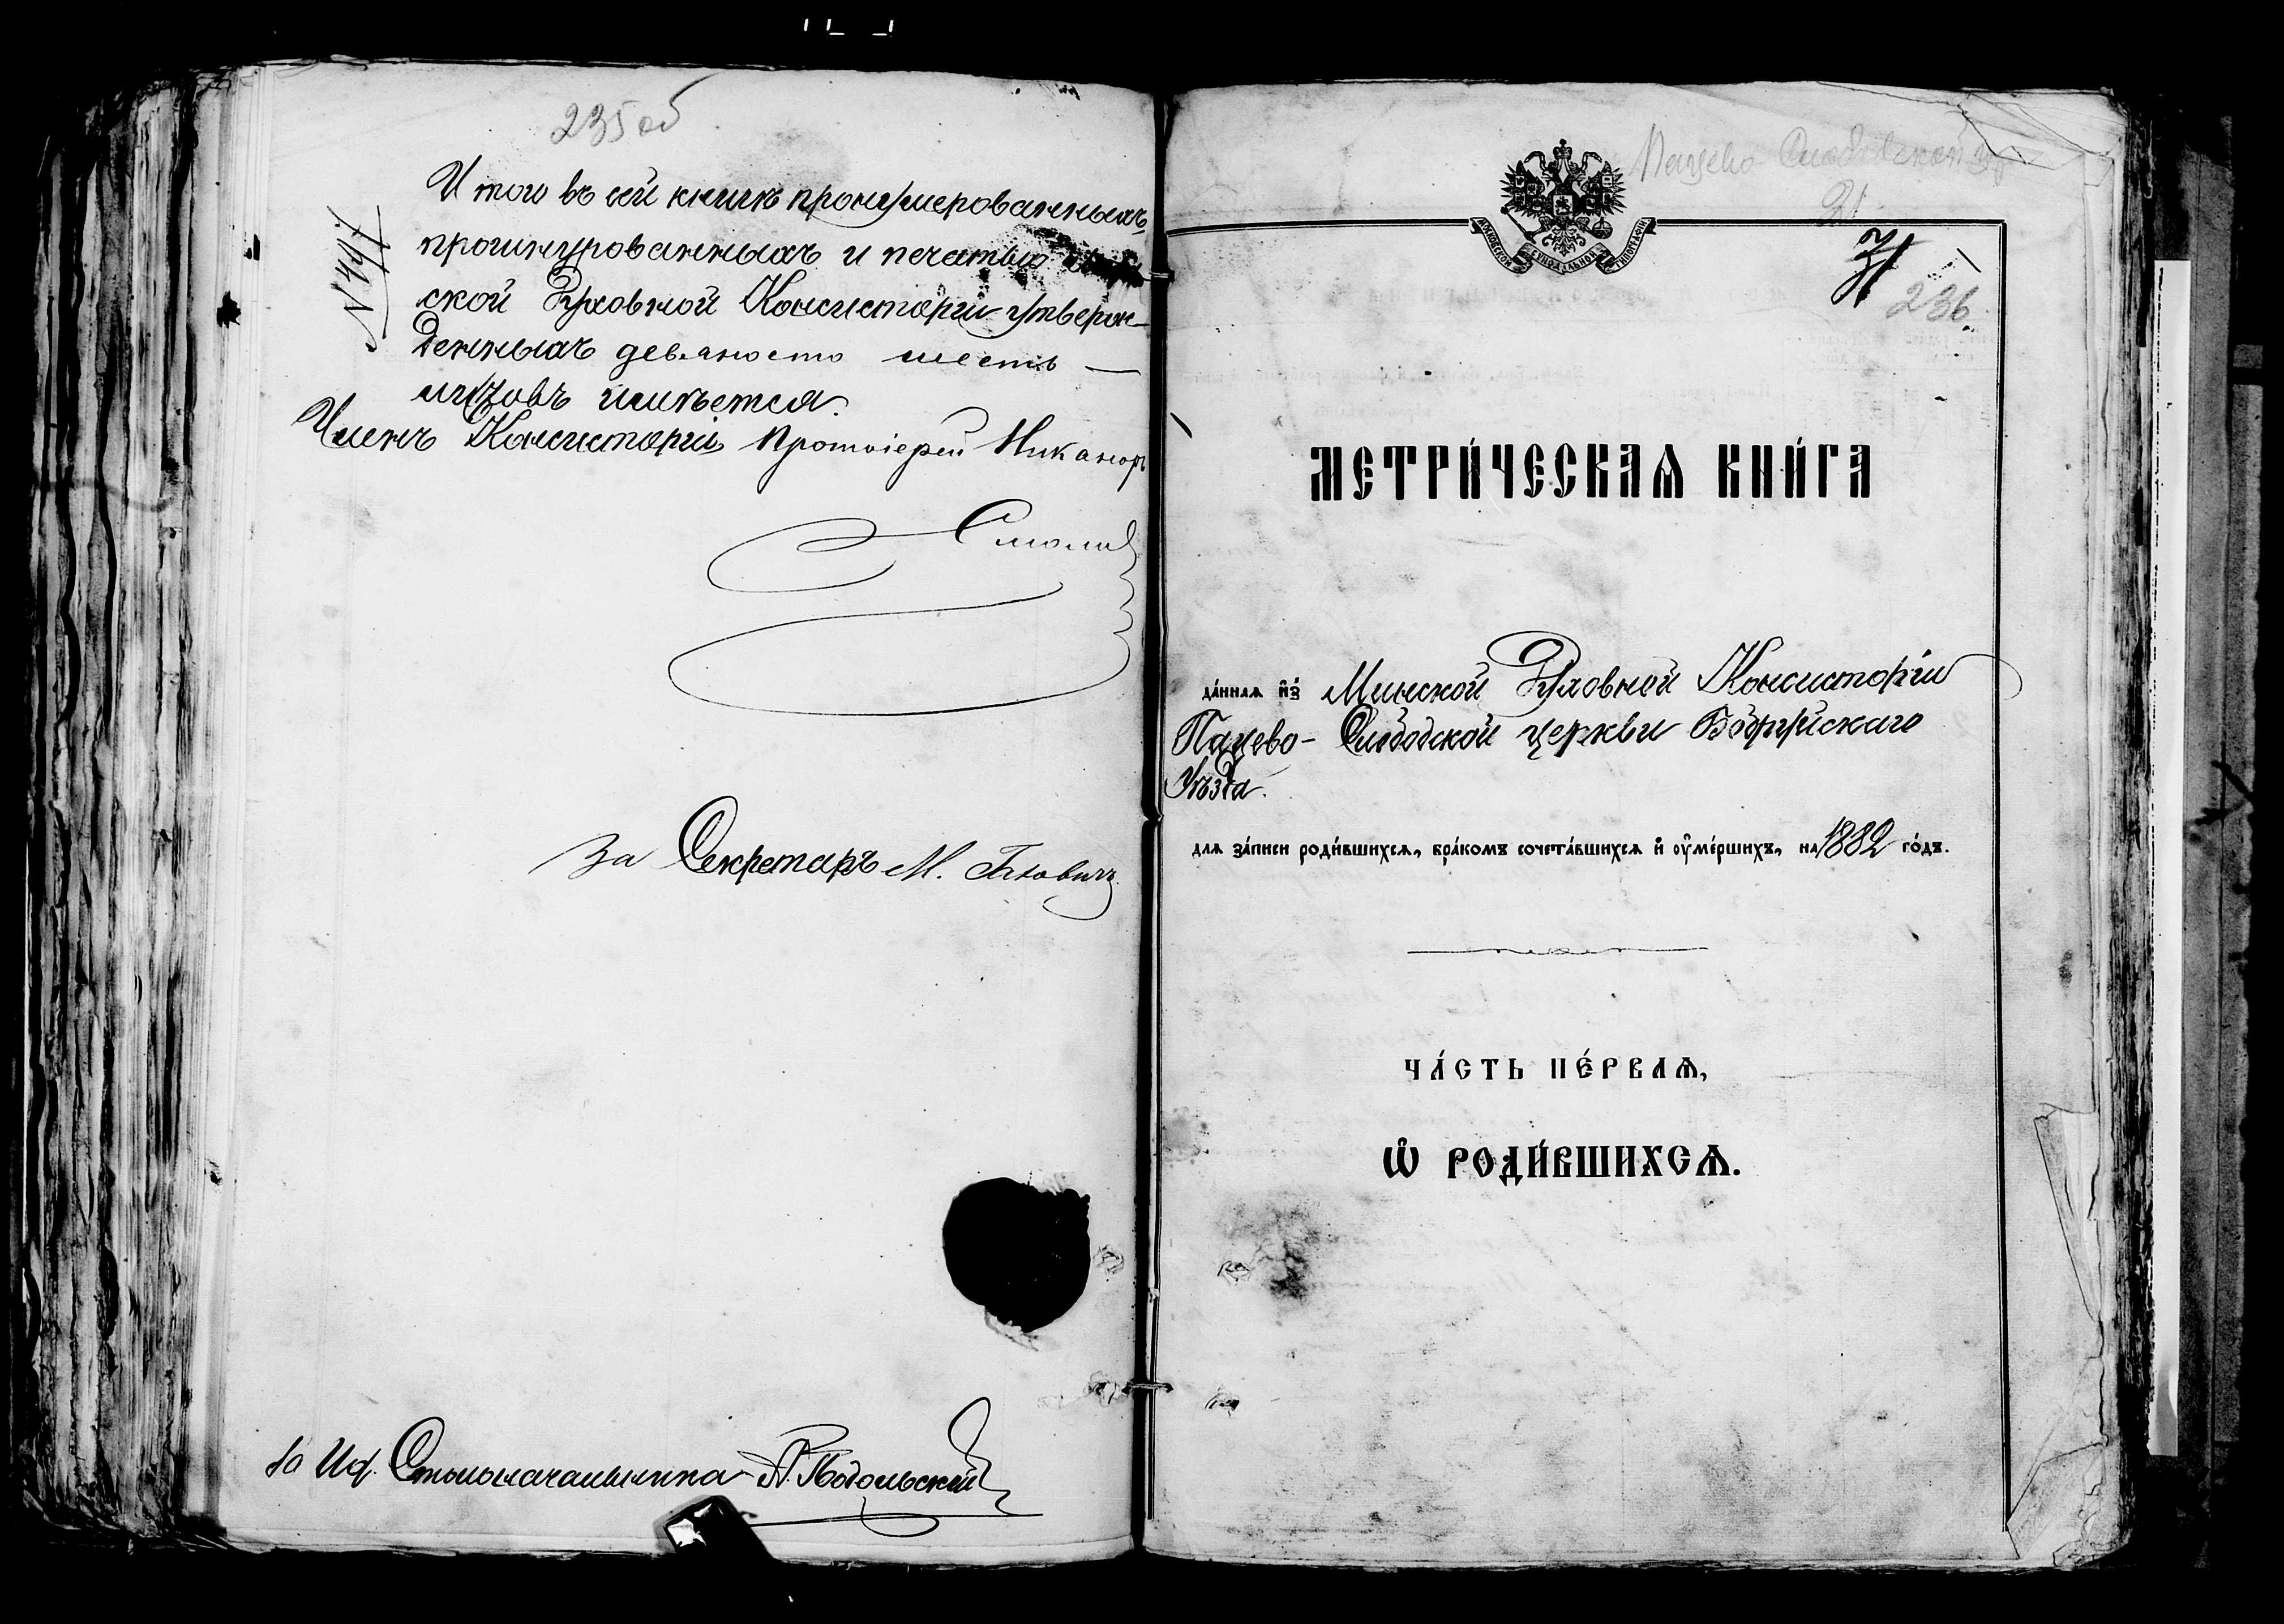 235 об
Итого въ сей книгѣ пронумерованныхъ,
прошнурованныхъ и печатью
ской Духовной Консисторіи утверж-
денныхъ девяносто шесть —
листовъ имѣется.
Членъ Консисторіи Протоіерей Никаноръ
За Секретаръ М.
За Ич. Столоначальника А. Подольскій
Пацево Слободской
31
31
236.
МОСКОВСКОЙ СѴНОДАЛЬНОЙ ТИПОГРАФІИ
МЕТРИ́ЧЕСКАѦ КНИ́ГА
да́ннаѧ и҆з̾ Минской Духовной Консисторіи
Пацево-Слободской церкви Бобруйскаго
Уѣзда.
длѧ за́писи роди́вшихсѧ, бра́комъ сочета́вшихсѧ и҆ оу҆ме́ршихъ, на 1882 го́дъ.
ЧА́СТЬ ПЕ́РВАѦ,
Ѡ҆ РОДИ́ВШИХСѦ.